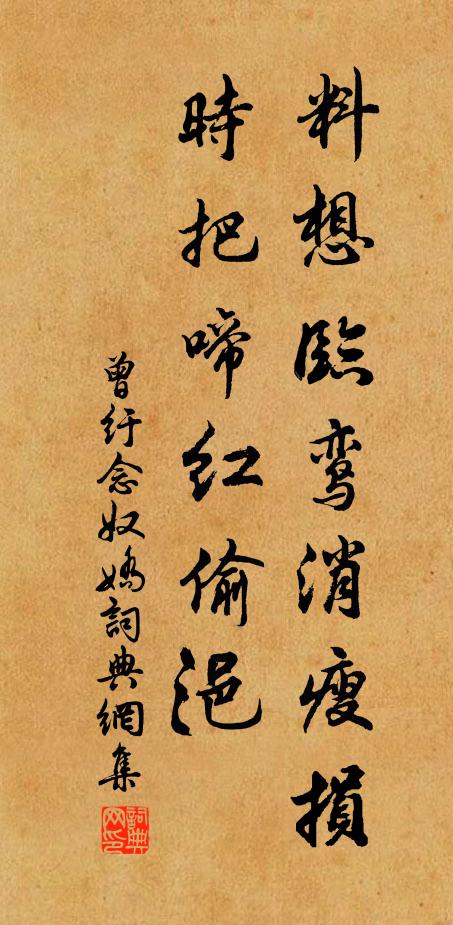 料想臨鸾消瘦損
時把啼红偷浥
曾纡念奴嬌詞典網集
詞典网印